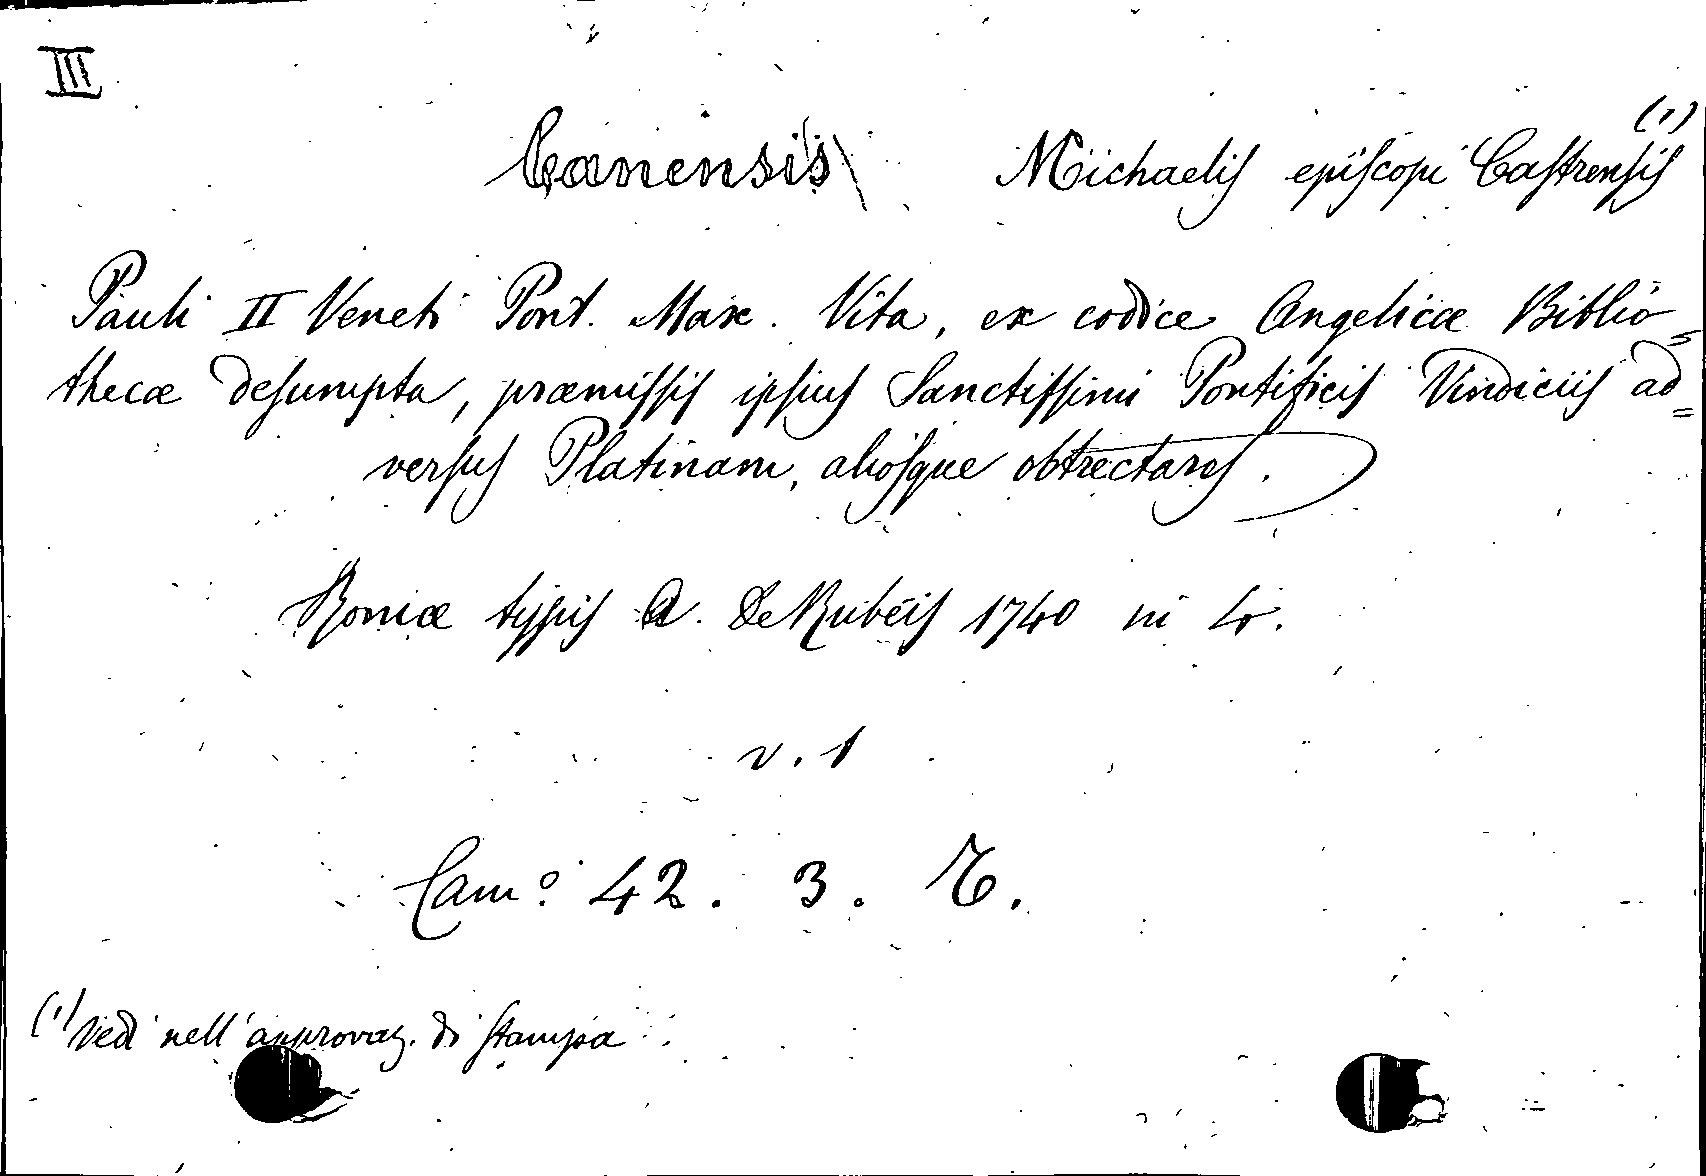 III
Canensis Michaelis episcopi Castrensis (1)
Pauli II Veneti Pont. Max. Vita, ex codice Angelicæ Biblio=
thecæ desumpta, præmissis ipsius Sanctissimi Pontificis Vindiciis ad=
versus Platinam, aliosque obtrectares.
Romæ typis A. De Rubeis 1740 in 4.
v. 1
Cam.º 42. 3.
(1) Vedi nell'approvaz. di stampa